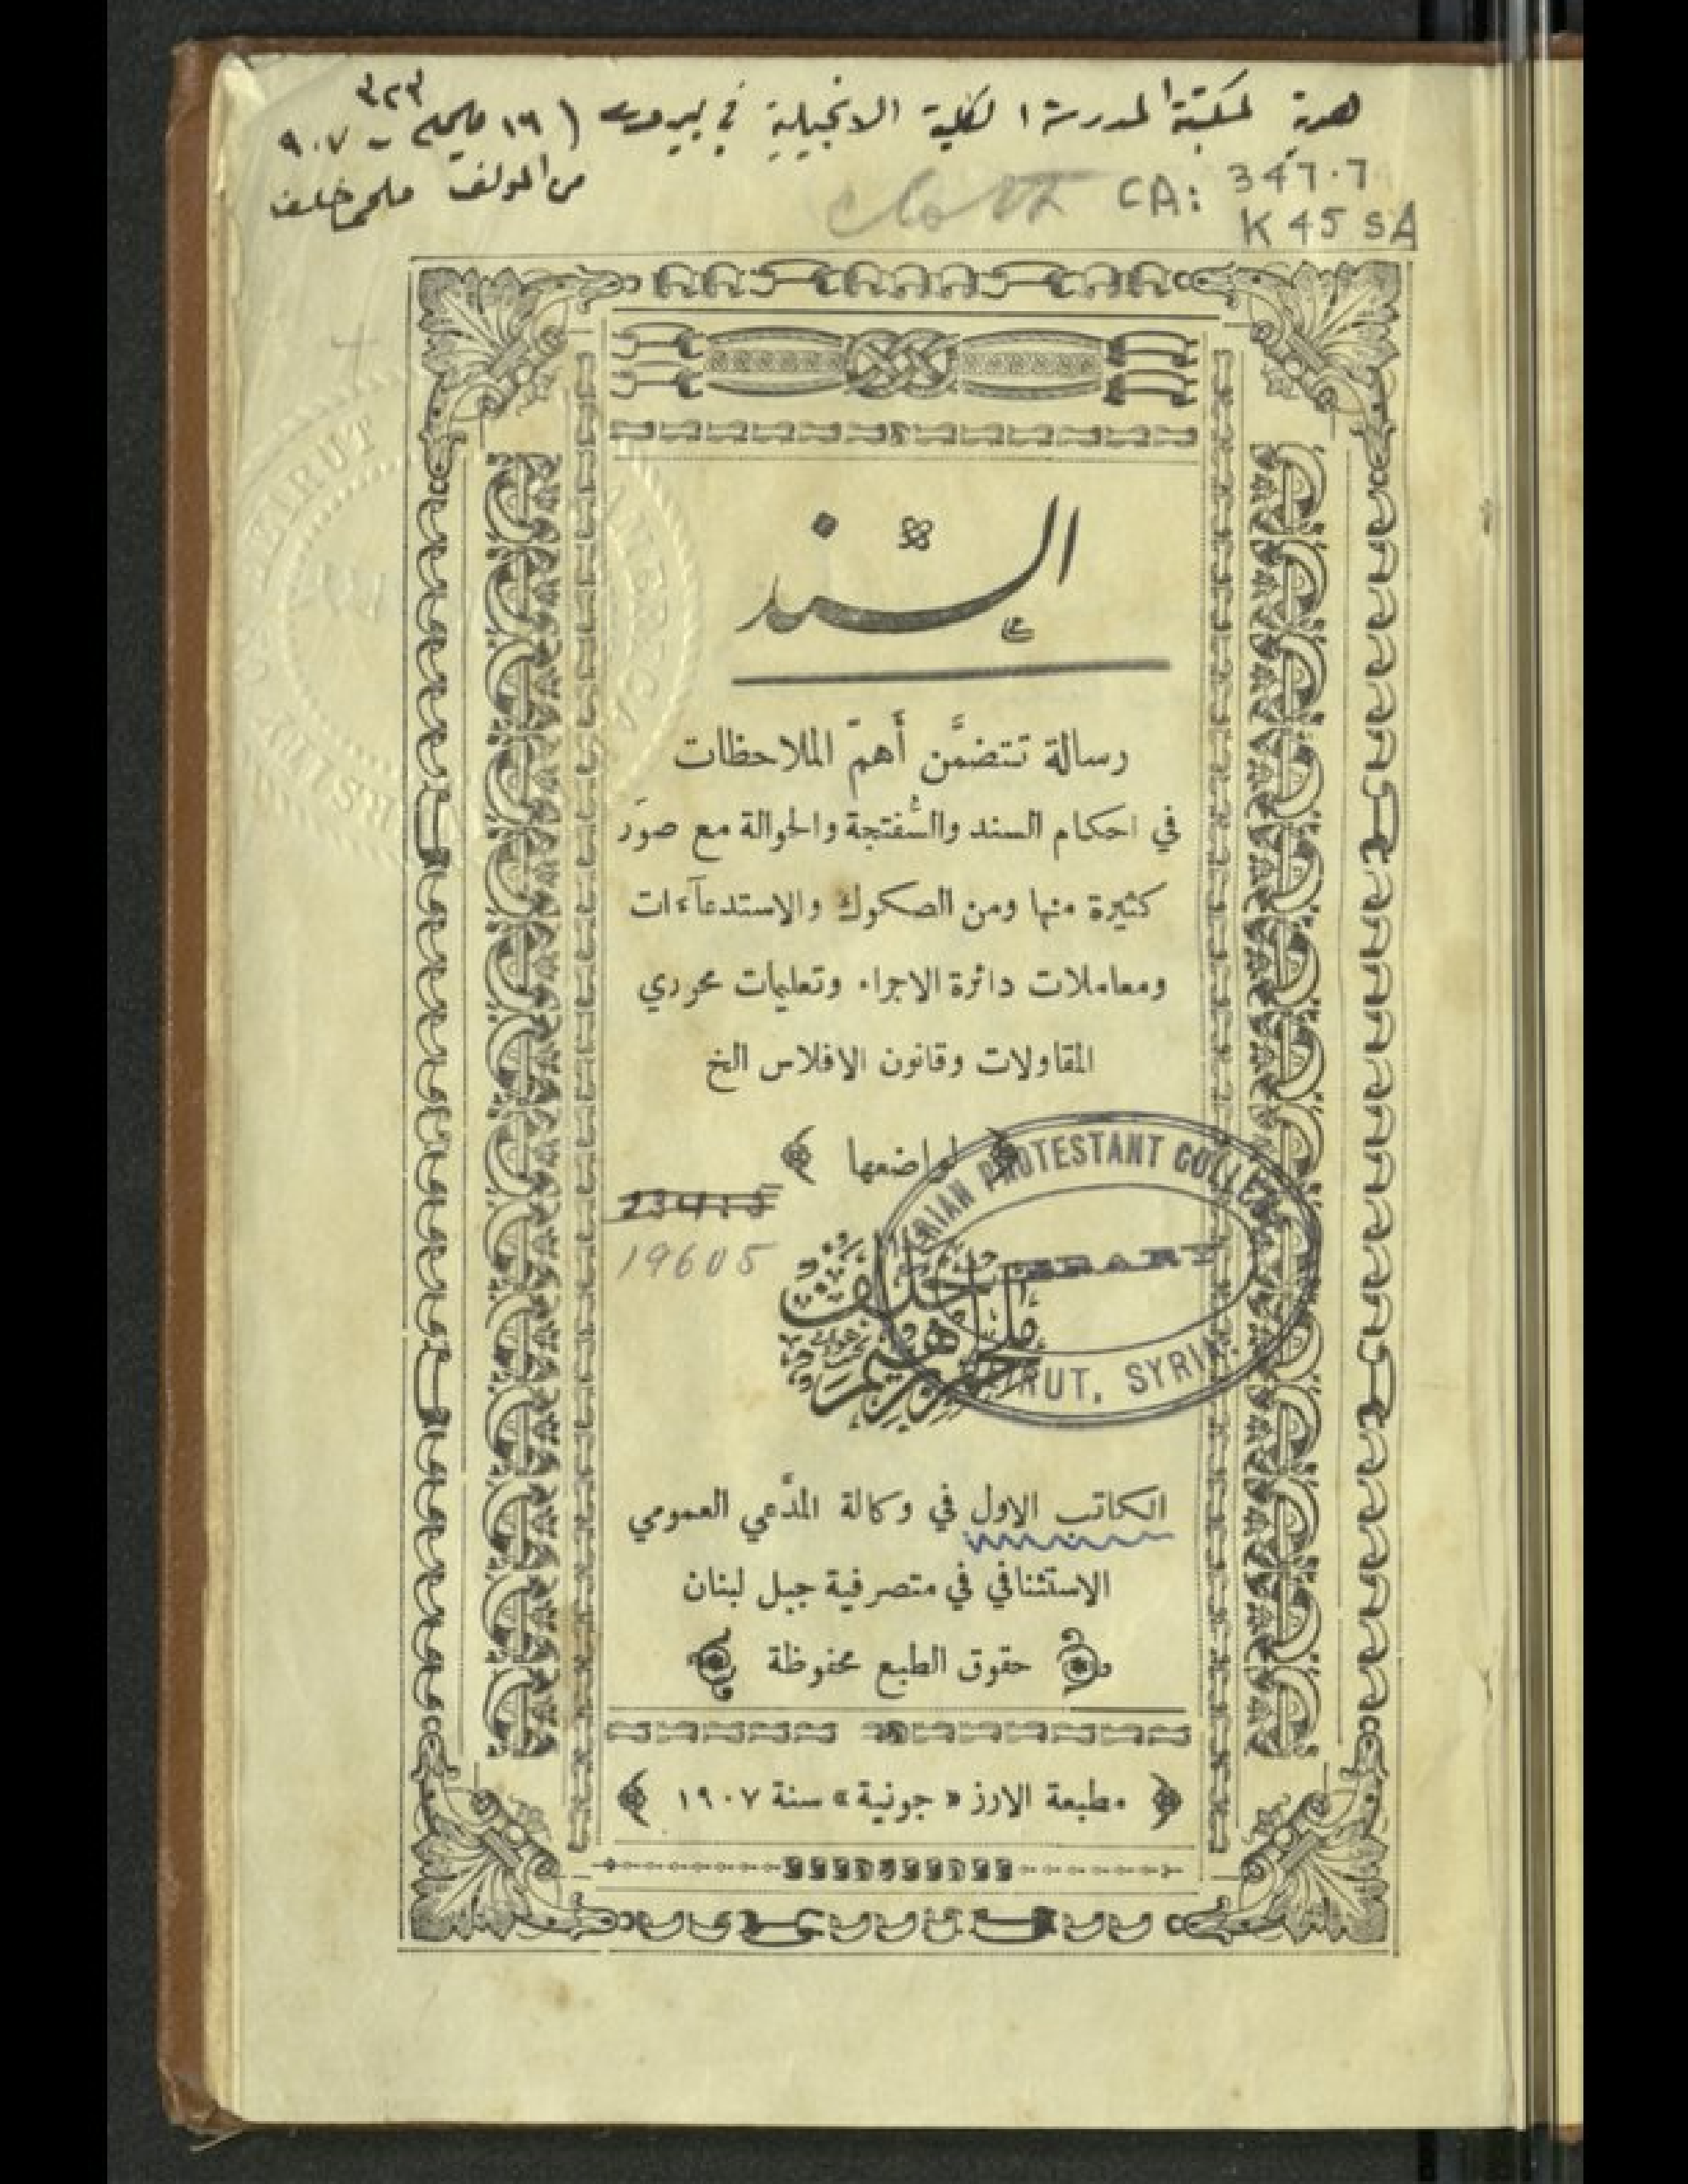 هدية لمكتبة المدرسة الكلية الانجيلية في بيروت
من المؤلف ملحم خلف
CA: 347.7
K45SA
السند
رسالة تتضمَّن أَهمّ الملاحظات
في احكام السند والسُّفتجة والحوالة مع صوَر
كثيرة منها ومن الصكوك والاستدعآءات
ومعاملات دائرة الاجراء وتعليمات محرري
المقاولات وقانون الافلاس الخ
لواضعها
SYRIAN PROTESTANT COLLEGE
LIBRARY
BEIRUT, SYRIA.
19605
ملحم ابرهيم خلف
الكاتب الاول في وكالة المدَّعي العمومي
الاستئنافي في متصرفية جبل لبنان
حقوق الطبع محفوظة
مطبعة الارز « جونية » سنة ١٩٠٧